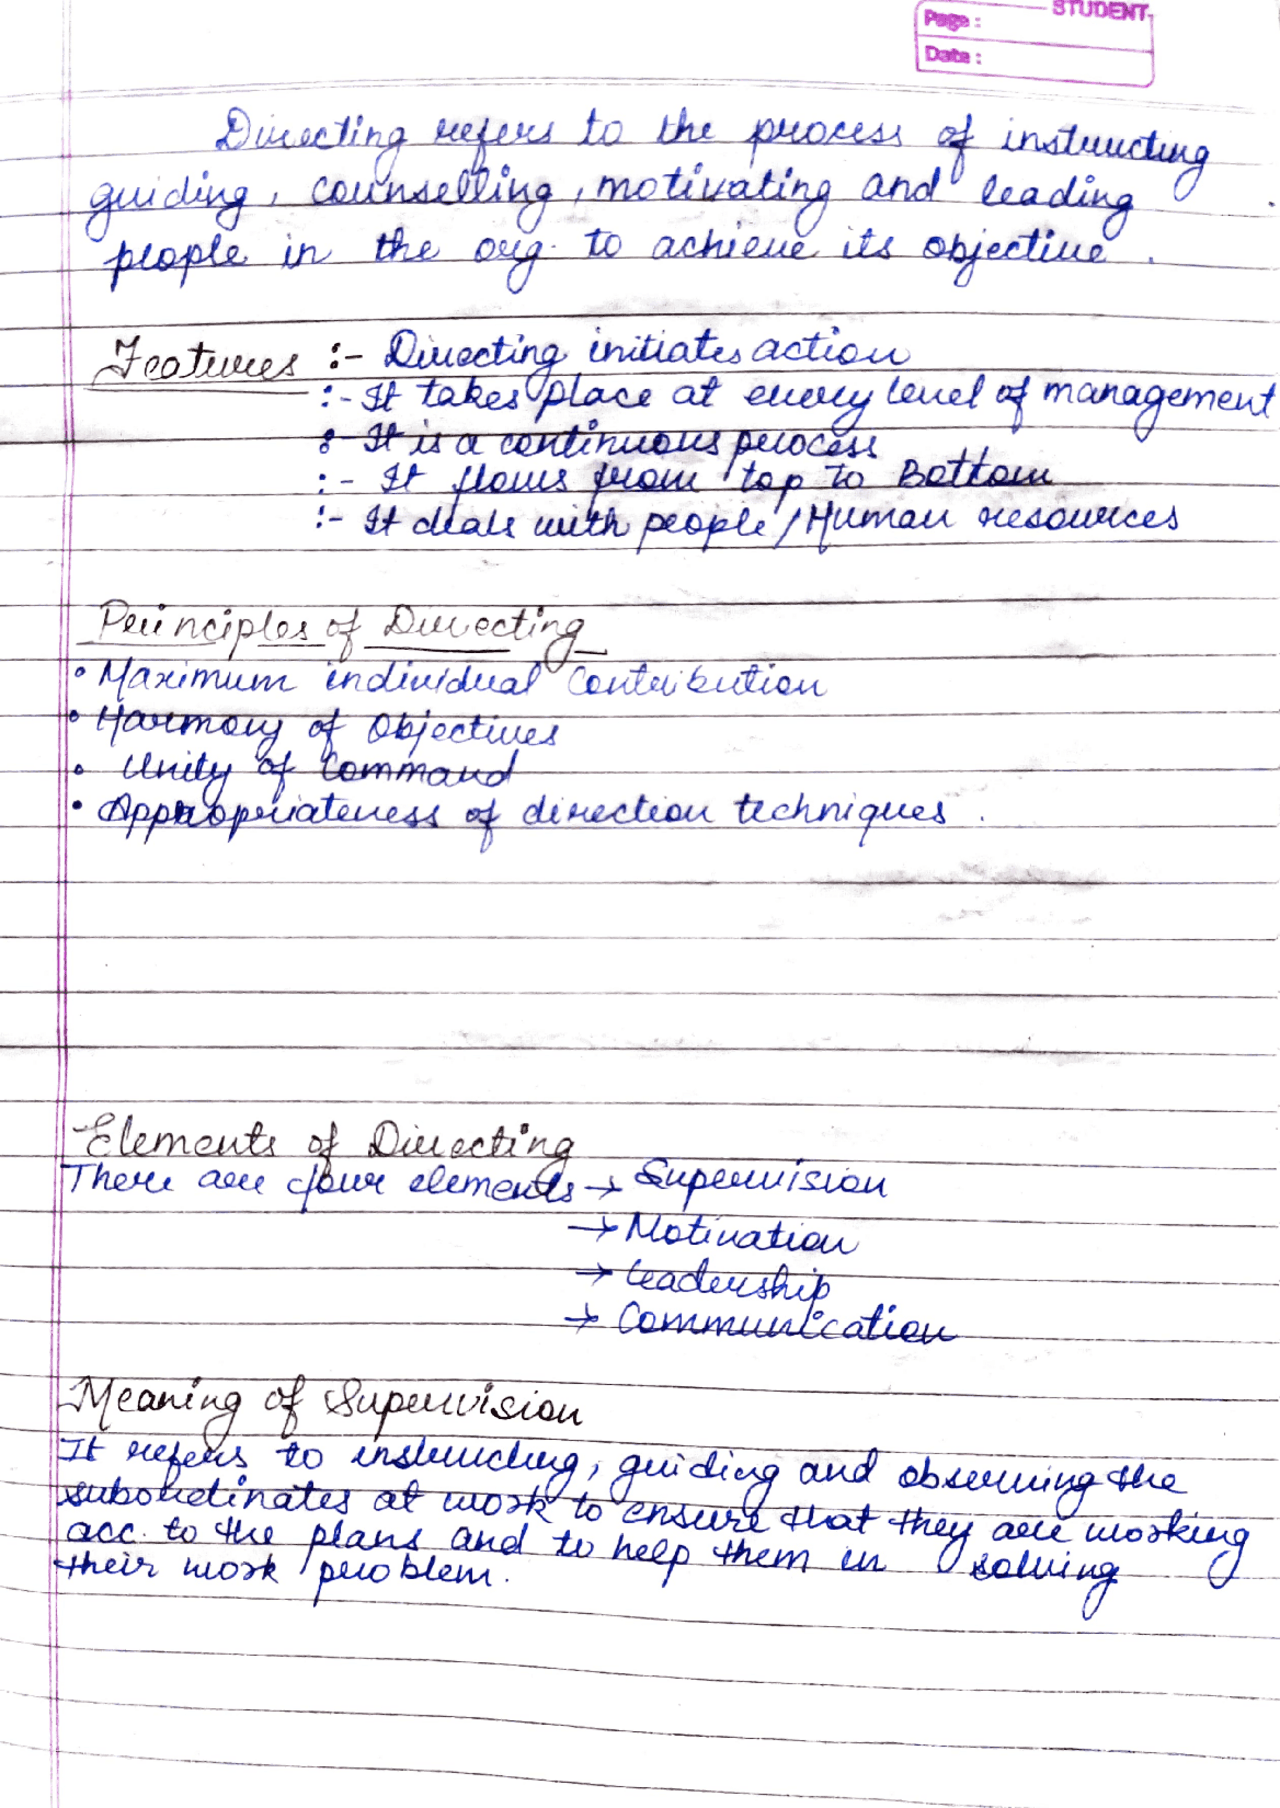 STUDENT
Page :
Date :
Directing refers to the process of instructing
guiding, counselling, motivating and leading
people in the org. to achieve its objective.
Features :- Directing initiates action
:- It takes place at every level of management
:- It is a continuous process
:- It flows from top to Bottom
:- It deals with people / Human resources
Principles of Directing
• Maximum individual Contribution
• Harmony of Objectives
• Unity of Command
• Appropriateness of direction techniques.
Elements of Directing
There are four elements → Supervision
→ Motivation
→ Leadership
→ Communication
Meaning of Supervision
It refers to instructing, guiding and observing the
subordinates at work to ensure that they are working
acc. to the plans and to help them in solving
their work problem.